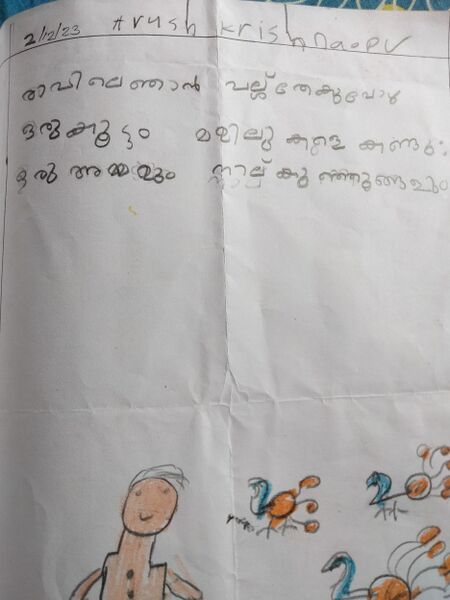 2/12/23 Arush Krishna.PV
രാവിലെ ഞാൻ പല്ല് തേകുപോൾ
ഒരു കൂട്ടം മയിലുകളെ കണ്ടു.
ഒരു അമ്മയും നാല് കുഞ്ഞുങ്ങളും